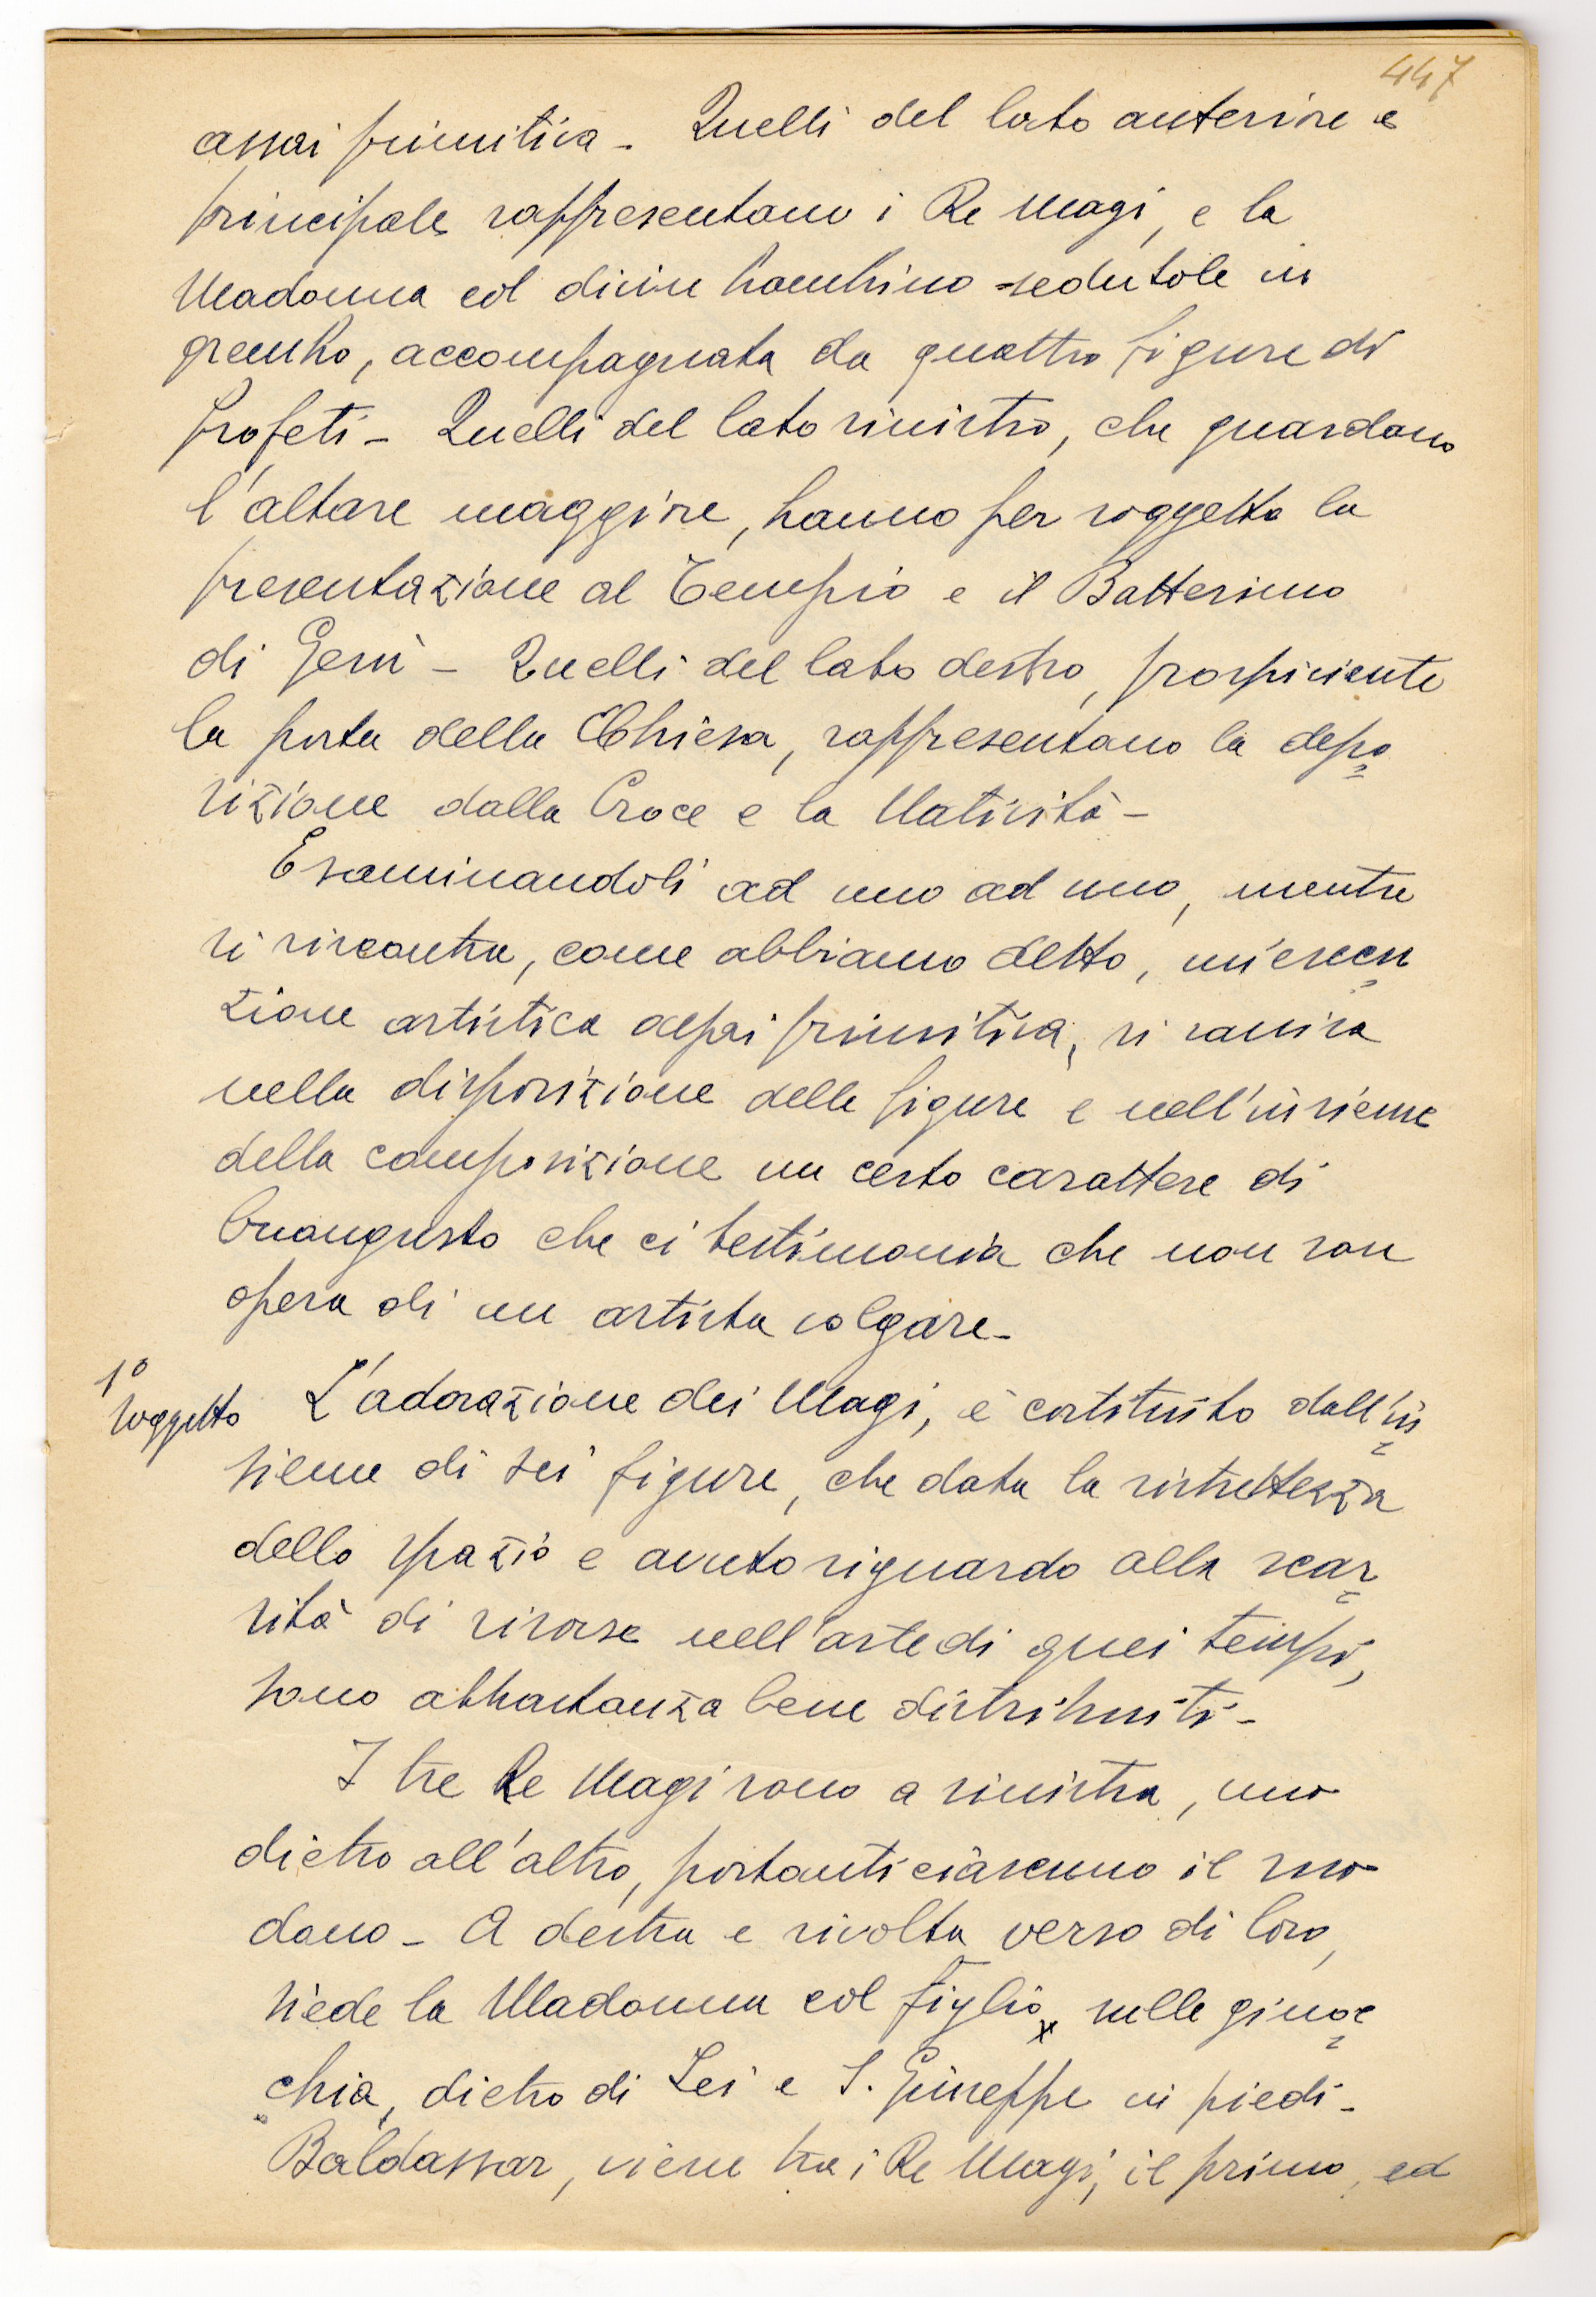 447
assai primitiva - Quelli del lato anteriore e
principale rappresentano i Re Magi, e la
Madonna col divin bambino sedutole in
grembo, accompagnata da quattro figure di
profeti - Quelli del lato sinistro, che guardano
l'altare maggiore, hanno per soggetto la
presentazione al Tempio e il Battesimo
di Gesù - Quelli del lato destro, prospiciente
la porta della Chiesa, rappresentano la depo=
sizione dalla Croce e la Natività -
Esaminandoli ad uno ad uno, mentre
si riscontra, come abbiamo detto, un'esecu=
zione artistica assai primitiva, si ravvisa
nella disposizione delle figure e nell'insieme
della composizione un certo carattere di
buongusto che ci testimonia che non son
opera di un artista volgare -
1º
soggetto L'adorazione dei Magi, è costituito dall'in=
sieme di sei figure, che data la ristrettezza
dello spazio e avuto riguardo alla scar=
sità di risorse nell'arte di quei tempi,
sono abbastanza bene distribuiti -
I tre Re Magi sono a sinistra, uno
dietro all'altro, portanti ciascuno il suo
dono - A destra e rivolta verso di loro,
siede la Madonna col figlio x sulle ginoc=
chia, dietro di Lei e S. Giuseppe in piedi -
Baldassar, viene tra i Re Magi, il primo, ed